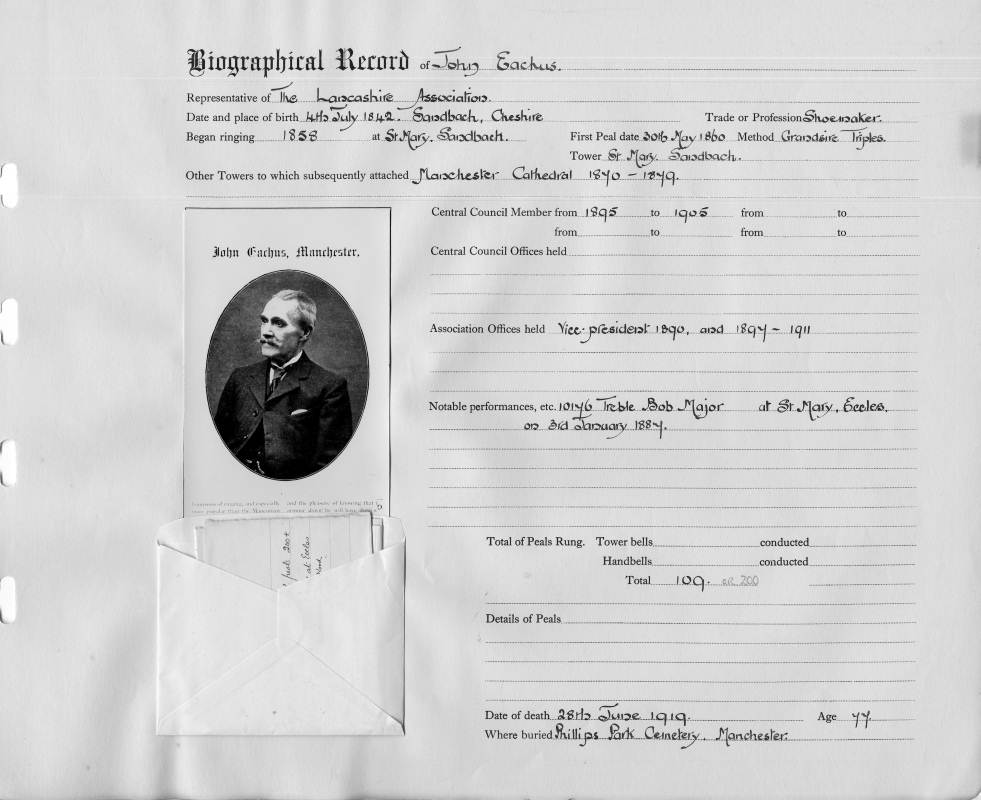 Biographical Record of John Eachus.
Representative of The Lancashire Association.
Date and place of birth 4th July 1842. Sandbach, Cheshire Trade or Profession Shoemaker.
Began ringing 1858 at St Mary. Sandbach. First Peal date 30th May 1860 Method Grandsire Triples.
Tower St Mary. Sandbach.
Other Towers to which subsequently attached Manchester Cathedral 1870 - 1879.
Central Council Member from 1895 to 1905 from to
from to from to
Central Council Offices held
John Eachus, Manchester.
Association Offices held Vice-president 1890, and 1897 - 1911
Notable performances, etc. 10176 Treble Bob Major at St Mary, Eccles.
on 3rd January 1887.
and the pleasure of knowing that
peals 200+
at Eccles
Total of Peals Rung. Tower bells conducted
Handbells conducted
Total 109. or 200
Details of Peals
Date of death 28th June 1919. Age 77.
Where buried Phillips Park Cemetery, Manchester.